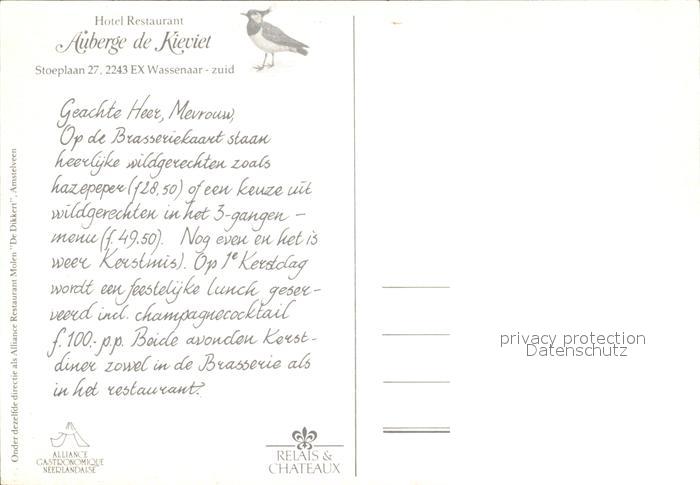 Hotel Restaurant
Auberge de Kieviet
Stoeplaan 27, 2243 EX Wassenaar - zuid
Geachte Heer, Mevrouw,
Op de Brasseriekaart staan
heerlijke wildgerechten zoals
hazepeper (f28,50) of een keuze uit
wildgerechten in het 3-gangen –
menu (f. 49.50). Nog even en het is
weer Kerstmis). Op 1e Kerstdag
wordt een feestelijke lunch geser-
veerd incl. champagnecocktail
f. 100.- p.p. Beide avonden Kerst-
diner zowel in de Brasserie als
in het restaurant.
Onder dezelfde directie als Alliance Restaurant Molen "De Dikkert", Amstelveen
ALLIANCE
GASTRONOMIQUE
NEERLANDAISE
RELAIS &
CHATEAUX
privacy protection
Datenschutz